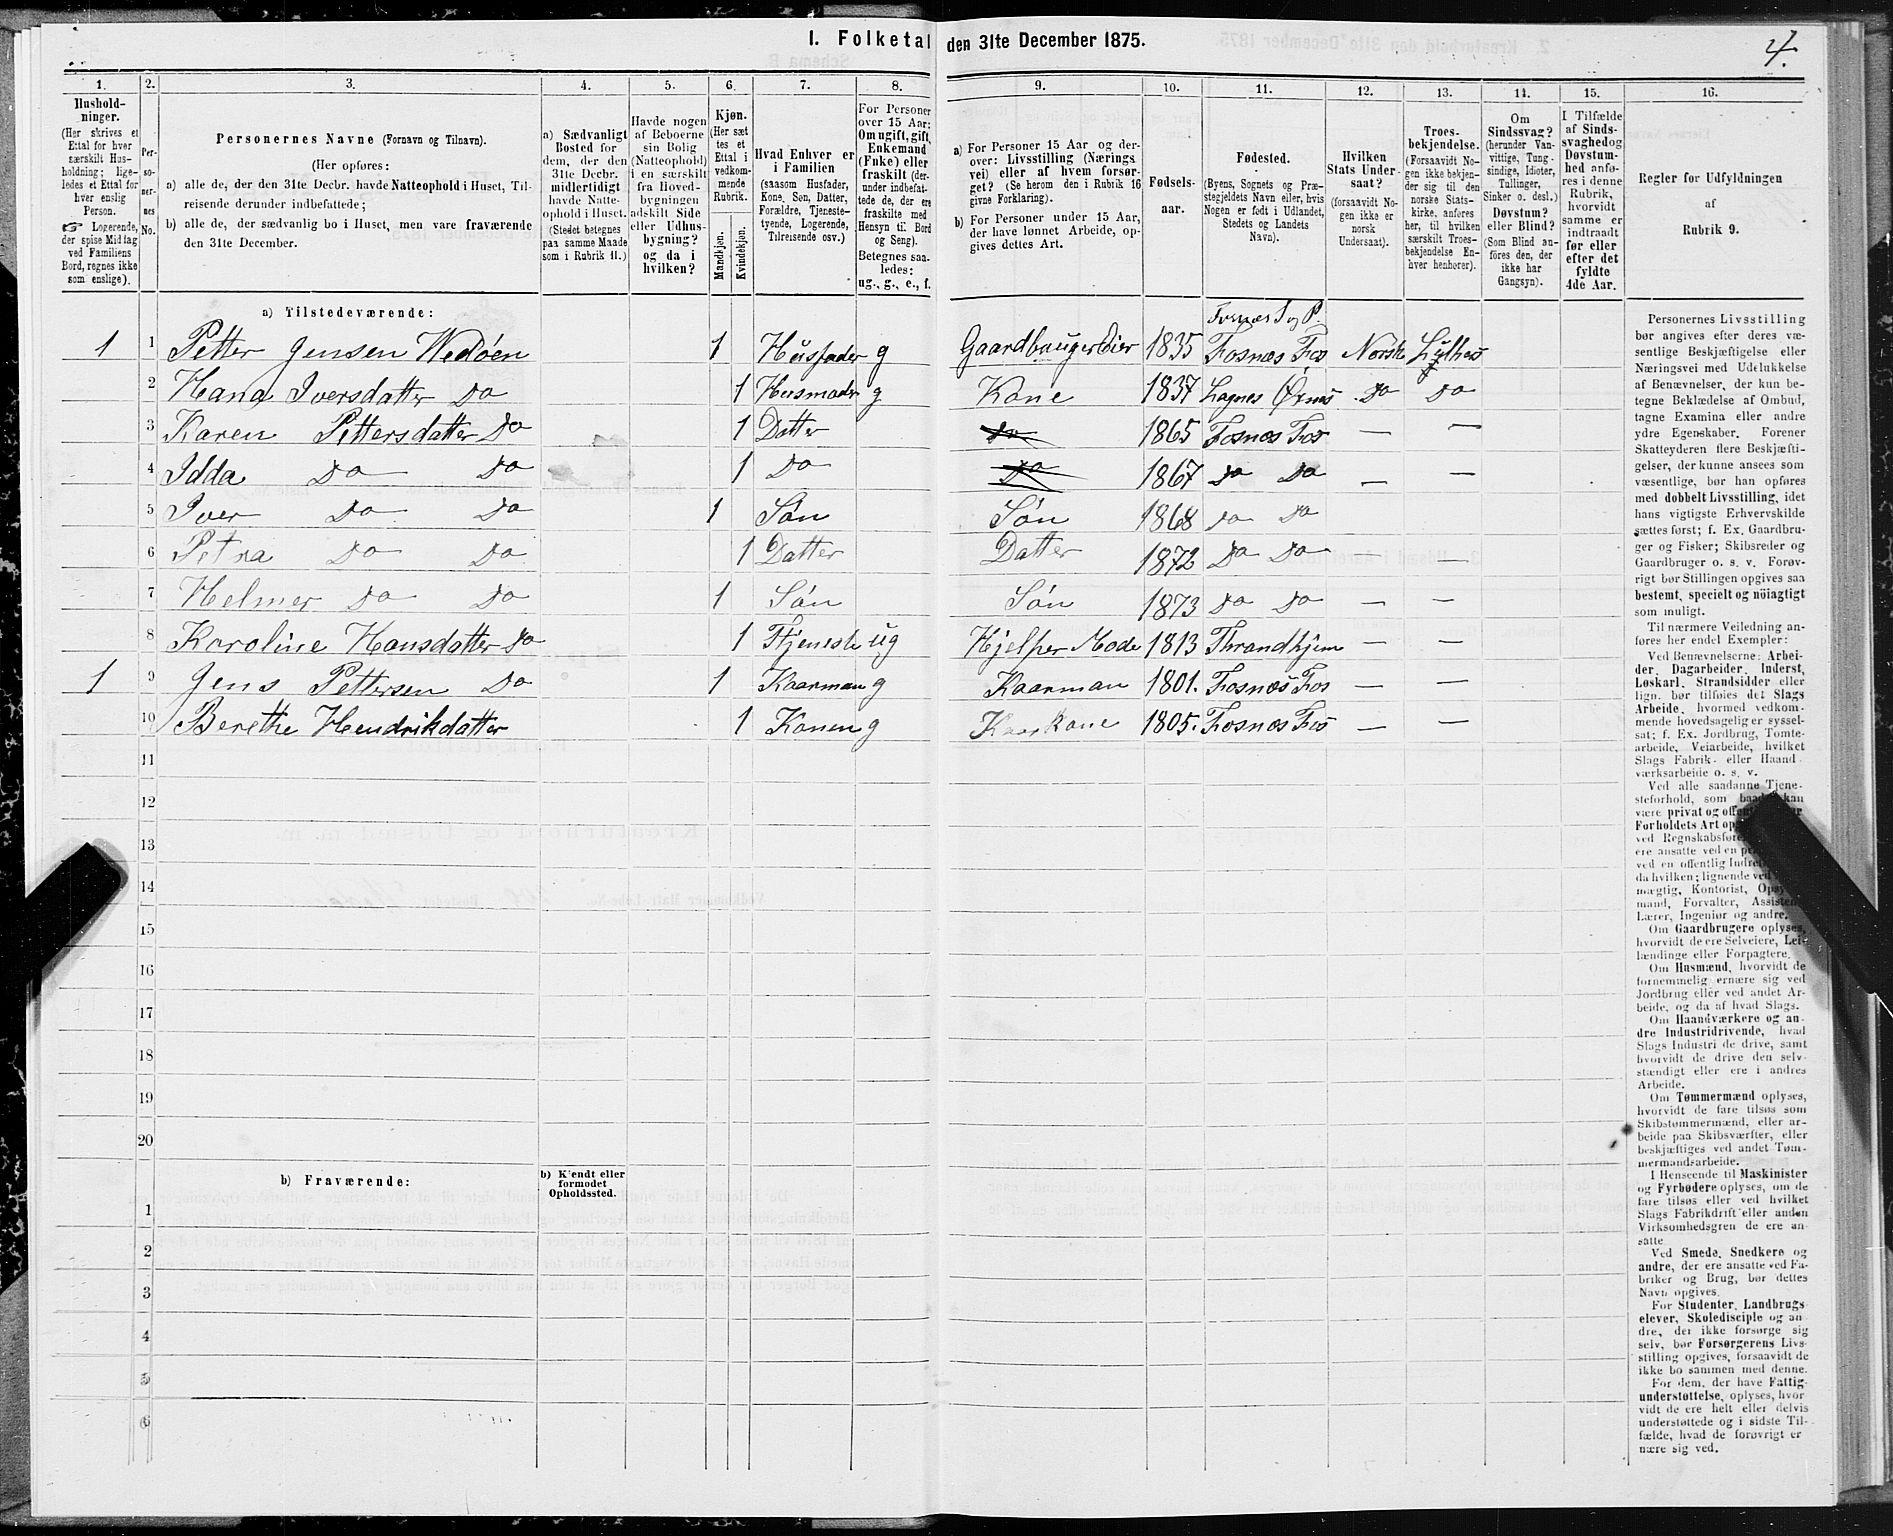 I. Folketal den 31te December 1875.
4.
1. 2. 3. 4. 5. 6. 7. 8. 9. 10. 11. 12. 13. 14. 15. 16.
Hushold-
ninger.
(Her skrives et
Ettal for hver
særskilt Hus-
holdning; lige-
ledes et Ettal for
hver enslig
Person.
☞ Logerende,
der spise Middag
ved Familiens
Bord, regnes ikke
som enslige).
Per-
so-
ner-
nes
No.
Personernes Navne (Fornavn og Tilnavn).
(Her opføres:
a) alle de, der den 31te Decbr. havde Natteophold i Huset, Til-
reisende derunder indbefattede;
b) alle de, der sædvanlig bo i Huset, men vare fraværende
den 31te December.
a) Sædvanligt
Bosted for
dem, der den
31te Decbr.
midlertidigt
havde Natte-
ophold i Huset.
(Stedet betegnes
paa samme Maade
som i Rubrik 11.)
Havde nogen
af Beboerne
sin Bolig
(Natteophold)
i en særskilt
fra Hoved-
bygningen
adskilt Side
eller Udhus-
bygning?
og da i
hvilken?
Kjøn.
(Her sæt
tes et
Ettal i
vedkom-
mende
Rubrik.
Mandkjøn.
Kvindekjøn.
Hvad Enhver er
i Familien
(saasom Husfader,
Kone, Søn, Datter,
Forældre, Tjeneste-
tyende, Logerende,
Tilreisende osv.)
For Personer
over 15 Aar:
Om ugift, gift,
Enkemand
(Enke) eller
fraskilt (der-
under indbefat-
tede de, der ere
fraskilte med
Hensyn til Bord
og Seng).
Betegnes saa-
ledes:
ug., g., e., f.
a) For Personer 15 Aar og der-
over: Livsstilling (Nærings
vei) eller af hvem forsør-
get? (Se herom den i Rubrik 16
givne Forklaring).
b) For Personer under 15 Aar,
der have lønnet Arbeide, op-
gives dettes Art.
Fødsels-
aar.
Fødested.
(Byens, Sognets og Præ-
stegjeldets Navn eller, hvis
Nogen er født i Udlandet,
Stedets og Landets
Navn).
Hvilken
Stats Under-
saat?
(forsaavidt No-
gen ikke er
norsk
Undersaat).
Troes-
bekjendelse.
(Forsaavidt No-
gen ikke bekjen-
der sig til den
norske Stats-
kirke, anføres
her, til hvilken
særskilt Troes-
bekjendelse En-
hver henhører).
Om
Sindssvag?
(herunder Van-
vittige, Tung-
sindige, Idioter,
Tullinger,
Sinker o. desl.)
Døvstum?
eller Blind?
(Som Blind an-
føres den, der
ikke har
Gangsyn).
I Tilfælde
af Sinds-
svaghed og
Døvstum-
hed anfø-
res i denne
Rubrik,
hvorvidt
samme er
indtraadt
før eller
efter det
fyldte
4de Aar.
Regler for Udfyldningen
af
Rubrik 9.
a) Tilstedeværende:
Fosnæs S og P.
1 1 Petter Jensen Wedøen 1 Husfader g Gaardbruger Eier 1835 Fosnæs Fos Norsk Luthes
2 Hana Iversdatter Do 1 Husmoder g Kone 1837 Do Do
3 Karen Pettersdatter Do 1 Datter Do 1865 Fosnæs Fos — —
4 Idda Do Do 1 Do Do 1867 Do Do — —
5 Iver Do Do 1 Søn Søn 1868 Do Do
6 Petra Do Do 1 Datter Datter 1872 Do Do — —
7 Helmer Do Do 1 Søn Søn 1873 Do Do — —
8 Karoline Hansdatter Do 1 Tjeneste ug Hjelper Mode 1813 Thrandhjem — —
1 9 Jens Pettersen Do 1 Kaarman g Kaarman 1801. Fosnæs Fos — —
10 Berethe Hendrikdatter 1 Konen g Kaarkone 1805. Fosnæs Fos — —
11
12
13
14
15
16
17
18
19
20
b) Fraværende:
b) Kjendt eller
formodet
Opholdssted.
1
2
3
4
5
6
Personernes Livsstilling
bør angives efter deres væ-
sentlige Beskjæftigelse eller
Næringsvei med Udelukkelse
af Benævnelser, der kun be-
tegne Beklædelse af Ombud,
tagne Examina eller andre
ydre Egenskaber. Forener
Skatteyderen flere Beskjæfti-
gelser, der kunne ansees som
væsentlige, bør han opføres
med dobbelt Livsstilling, idet
hans vigtigste Erhvervskilde
sættes først; f. Ex. Gaardbru-
ger og Fisker; Skibsreder og
Gaardbruger o. s. v. Forøv-
rigt bør Stillingen opgives saa
bestemt, specielt og nöiagtigt
som muligt.
Til nærmere Veiledning an-
føres her endel Exempler:
Ved Benævnelserne: Arbei-
der, Dagarbeider, Inderst,
Løskarl, Strandsidder eller
lign. bør tilføies det Slags
Arbeide, hvormed vedkom-
mende hovedsagelig er syssel-
sat; f. Ex. Jordbrug, Tomte-
arbeide, Veiarbeide, hvilket
Slags Fabrik- eller Haand-
værksarbeide o. s. v.
Ved alle saadanne Tjene-
steforhold, som baade kan
være privat og
Forholdets Art
ved
ere ansatte ved en
ved en offentlig
da hvilken; lignende ved
mægtig, Kontorist,
mand, Forvalter,
Lærer, Ingeniør og andre.
Om Gaardbrugere oplyses,
hvorvidt de ere Selveiere, Lei-
lændinge eller Forpagtere.
Om Husmænd, hvorvidt de
fornemmelig ernære sig ved
Jordbrug eller ved andet Ar-
beide, og da af hvad Slags.
Om Haandværkere og an-
dre Industridrivende, hvad
Slags Industri de drive, samt
hvorvidt de drive den selv-
stændigt eller ere i andres
Arbeide.
Om Tømmermænd oplyses,
hvorvidt de fare tilsøs som
Skibstømmermænd, eller ar-
beide paa Skibsværfter, eller
beskjæftiges ved andet Tøm-
mermandsarbeide.
I Henseende til Maskinister
og Fyrbødere oplyses, om de
fare tilsøs eller ved hvilket
Slags Fabrikdrift eller anden
Virksomhedsgren de ere an-
satte
Ved Smede, Snedkere og
andre, der ere ansatte ved Fa-
briker og Brug, bør dettes
Navn opgives.
For Studenter, Landbrugs
elever, Skoledisciple og an
dre, der ikke forsørge sig
selv, bør Forsørgerens Livs-
stilling opgives, forsaavidt de
ikke bo sammen med denne.
For dem, der have Fattig-
understøttelse, oplyses, hvor
vidt de ere helt eller delvis
understøttede og i sidste Til-
fælde, hvad de forøvrigt er
nære sig ved.